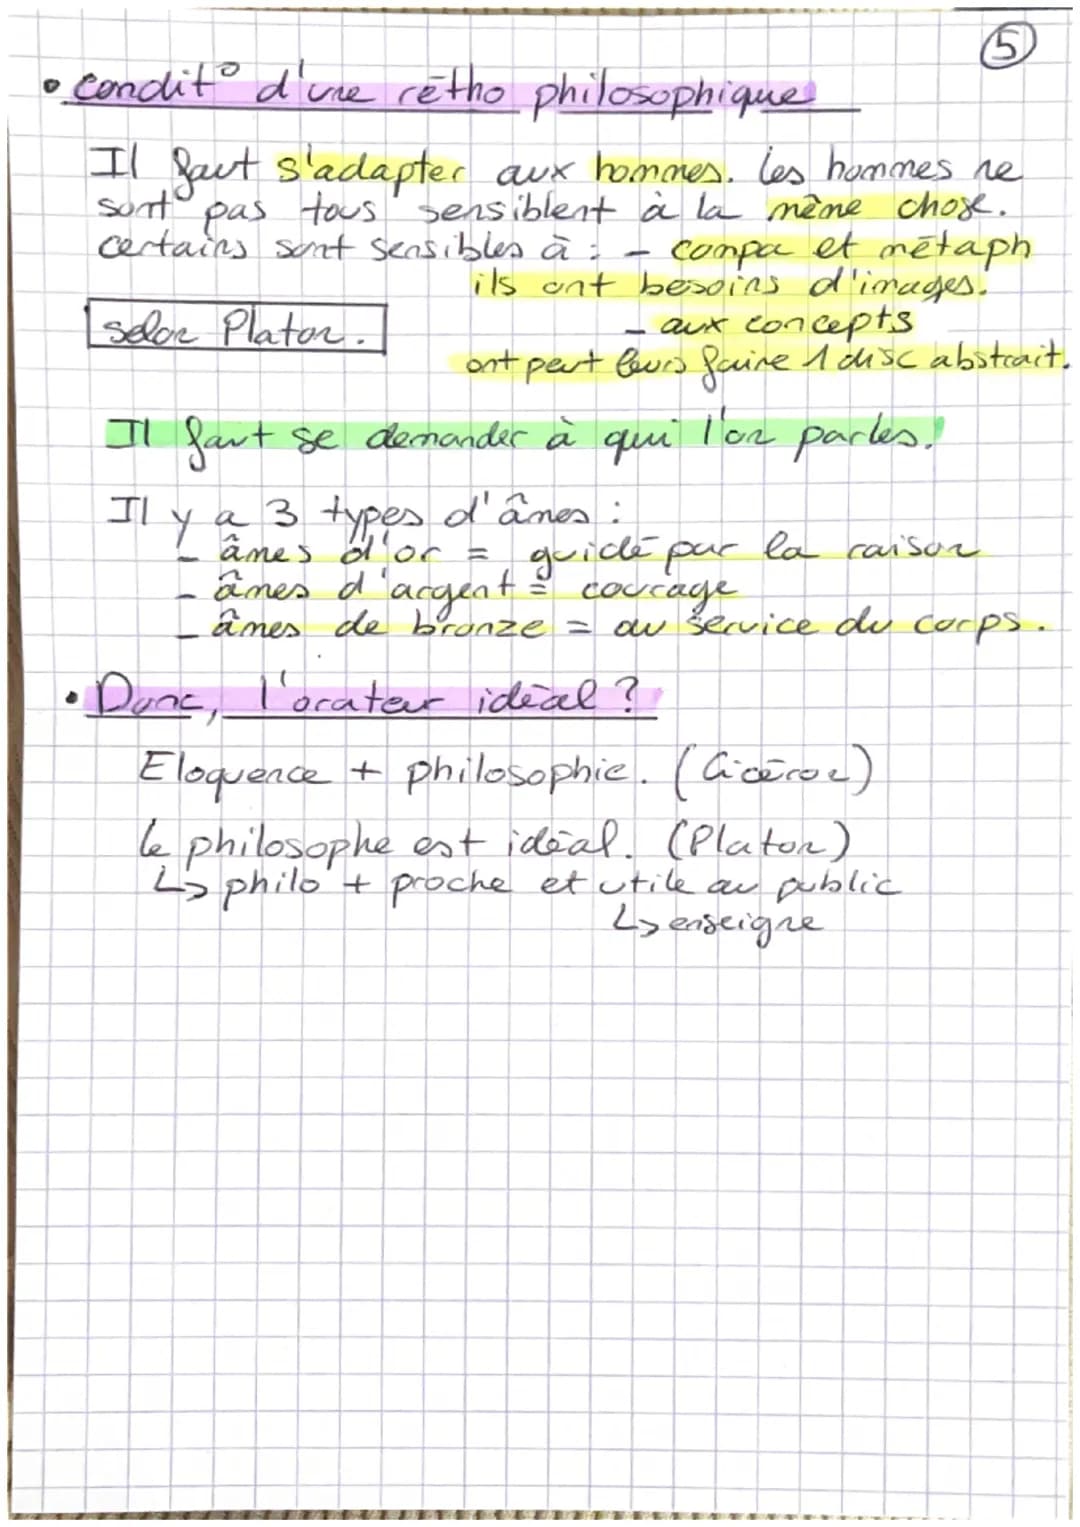 5
• condit° d'une rétho philosophique
Il faut s'adapter aux hommes. Les hommes ne
sont pas tous sensiblent à la même chose.
certains sont sensibles à : - compa et métaph
ils ont besoins d'images.
selon Platon.
- aux concepts
ont peut leurs faire 1 disc abstrait.
Il faut se demander à qui l'on parles.
Il y a 3 types d'âmes :
- âmes d'or = guidé par la raison
- âmes d'argent = courage
- âmes de bronze = au service du corps.
• Donc, l'orateur idéal ?
Eloquence + philosophie. (Cicéron)
Le philosophe est idéal. (Platon)
↳ philo + proche et utile au public
↳ enseigne